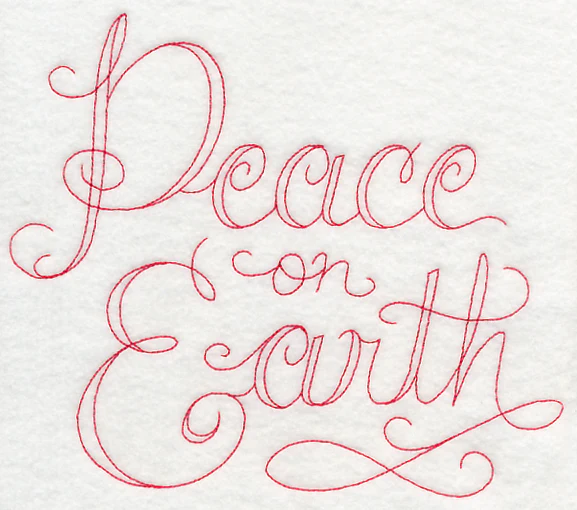 Peace
on
Earth